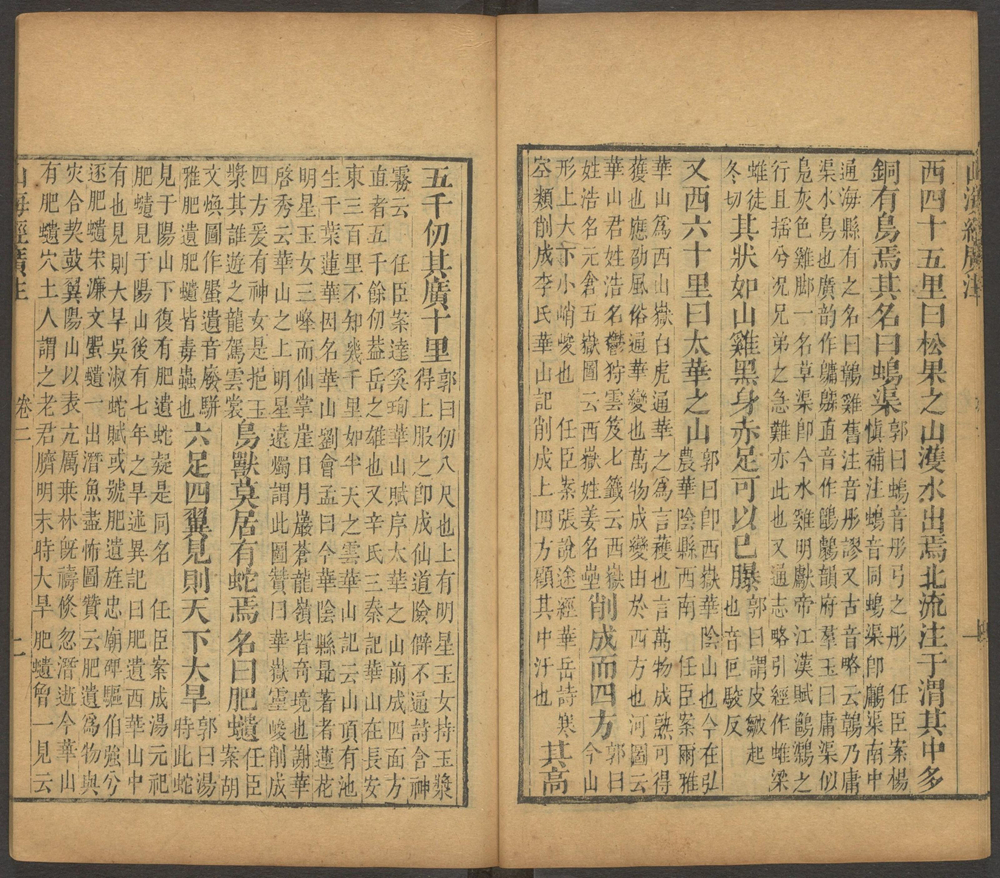 山海經廣注
西四十五里曰松果之山濩水出焉北流注于渭其中多
銅有鳥焉其名曰䳋渠
郭曰䳋音彤弓之彤 任臣案楊
慎補注䳋音同䳋渠即渠南中
通海縣有之名曰雞舊注音彤謬又古音略云乃庸
渠水色也廣韵作直音作韻府羣玉曰庸渠似
鳧灰色雞脚一名草渠卽今水雞明獻帝江漢賦之
行且搖兮况兄弟之急難亦此也又通志略引經作蜼梁
蜼徒
冬切
其狀如山雞黑身赤足可以已䑋
郭曰謂皮皴起
也音叵駮反
又西六十里曰太華之山
郭曰卽西嶽華陰山也今在弘
農華陰縣西南 任臣案爾雅
華山爲西山嶽白虎通華之爲言蒦也言萬物成熟可得
獲也應劭風俗通華變也萬物成變由於西方也河圖云
華山君姓浩名鬱狩雲笈七籤云西嶽
姓浩名元倉五嶽圖云西嶽姓姜名壘
削成而四方
郭曰
今山
形上大下小峭峻也 任臣案張說途經華岳詩寒
空類削成李氏華山記削成上四方顧其中汙也
其高
五千仞其廣十里
郭曰仞八尺也上有明星玉女持玉漿
得上服之卽成仙道險僻不通詩含神
霧云 任臣案達奚珣華山賦序太華之山前成四面方
直者五千餘仞葢岳之雄也又辛氏三秦記華山在長安
東三百里不知幾千里如半天之雲華山記云山頂有池
生千葉蓮華因名華山劉會孟曰今華陰縣最著者蓮花
明星玉女三峰而仙掌崖日月巖蒼龍嶺皆奇境也謝華
啓秀云華山之上明星遠燭謂此圖贊曰華嶽靈峻削成
四方爰有神女是挹玉
漿其誰遊之龍駕雲裳
鳥獸莫居有蛇焉名曰肥䗤
任臣
案胡
文煥圖作䗤遺音廢駢
雅肥遺肥䗤皆毒蟲也
六足四翼見則天下大旱
郭曰湯
時此蛇
見于陽山下復有肥遺蛇疑是同名 任臣案成湯元祀
肥䗤見于陽山後有七年之旱述異記曰肥遺西華山中
有也見則大旱吳淑蛇賦或號肥遺旌忠廟碑驅伯強兮
逐肥䗤宋濂文䗤一出潛魚盡怖圖贊云肥遺爲物與
災合契鼓翼陽山以表亢厲桑林旣禱倐忽潛逝今華山
有肥䗤穴土人謂之老君臍明末時大旱肥䗤曾一見云
山海經廣注
卷二
二